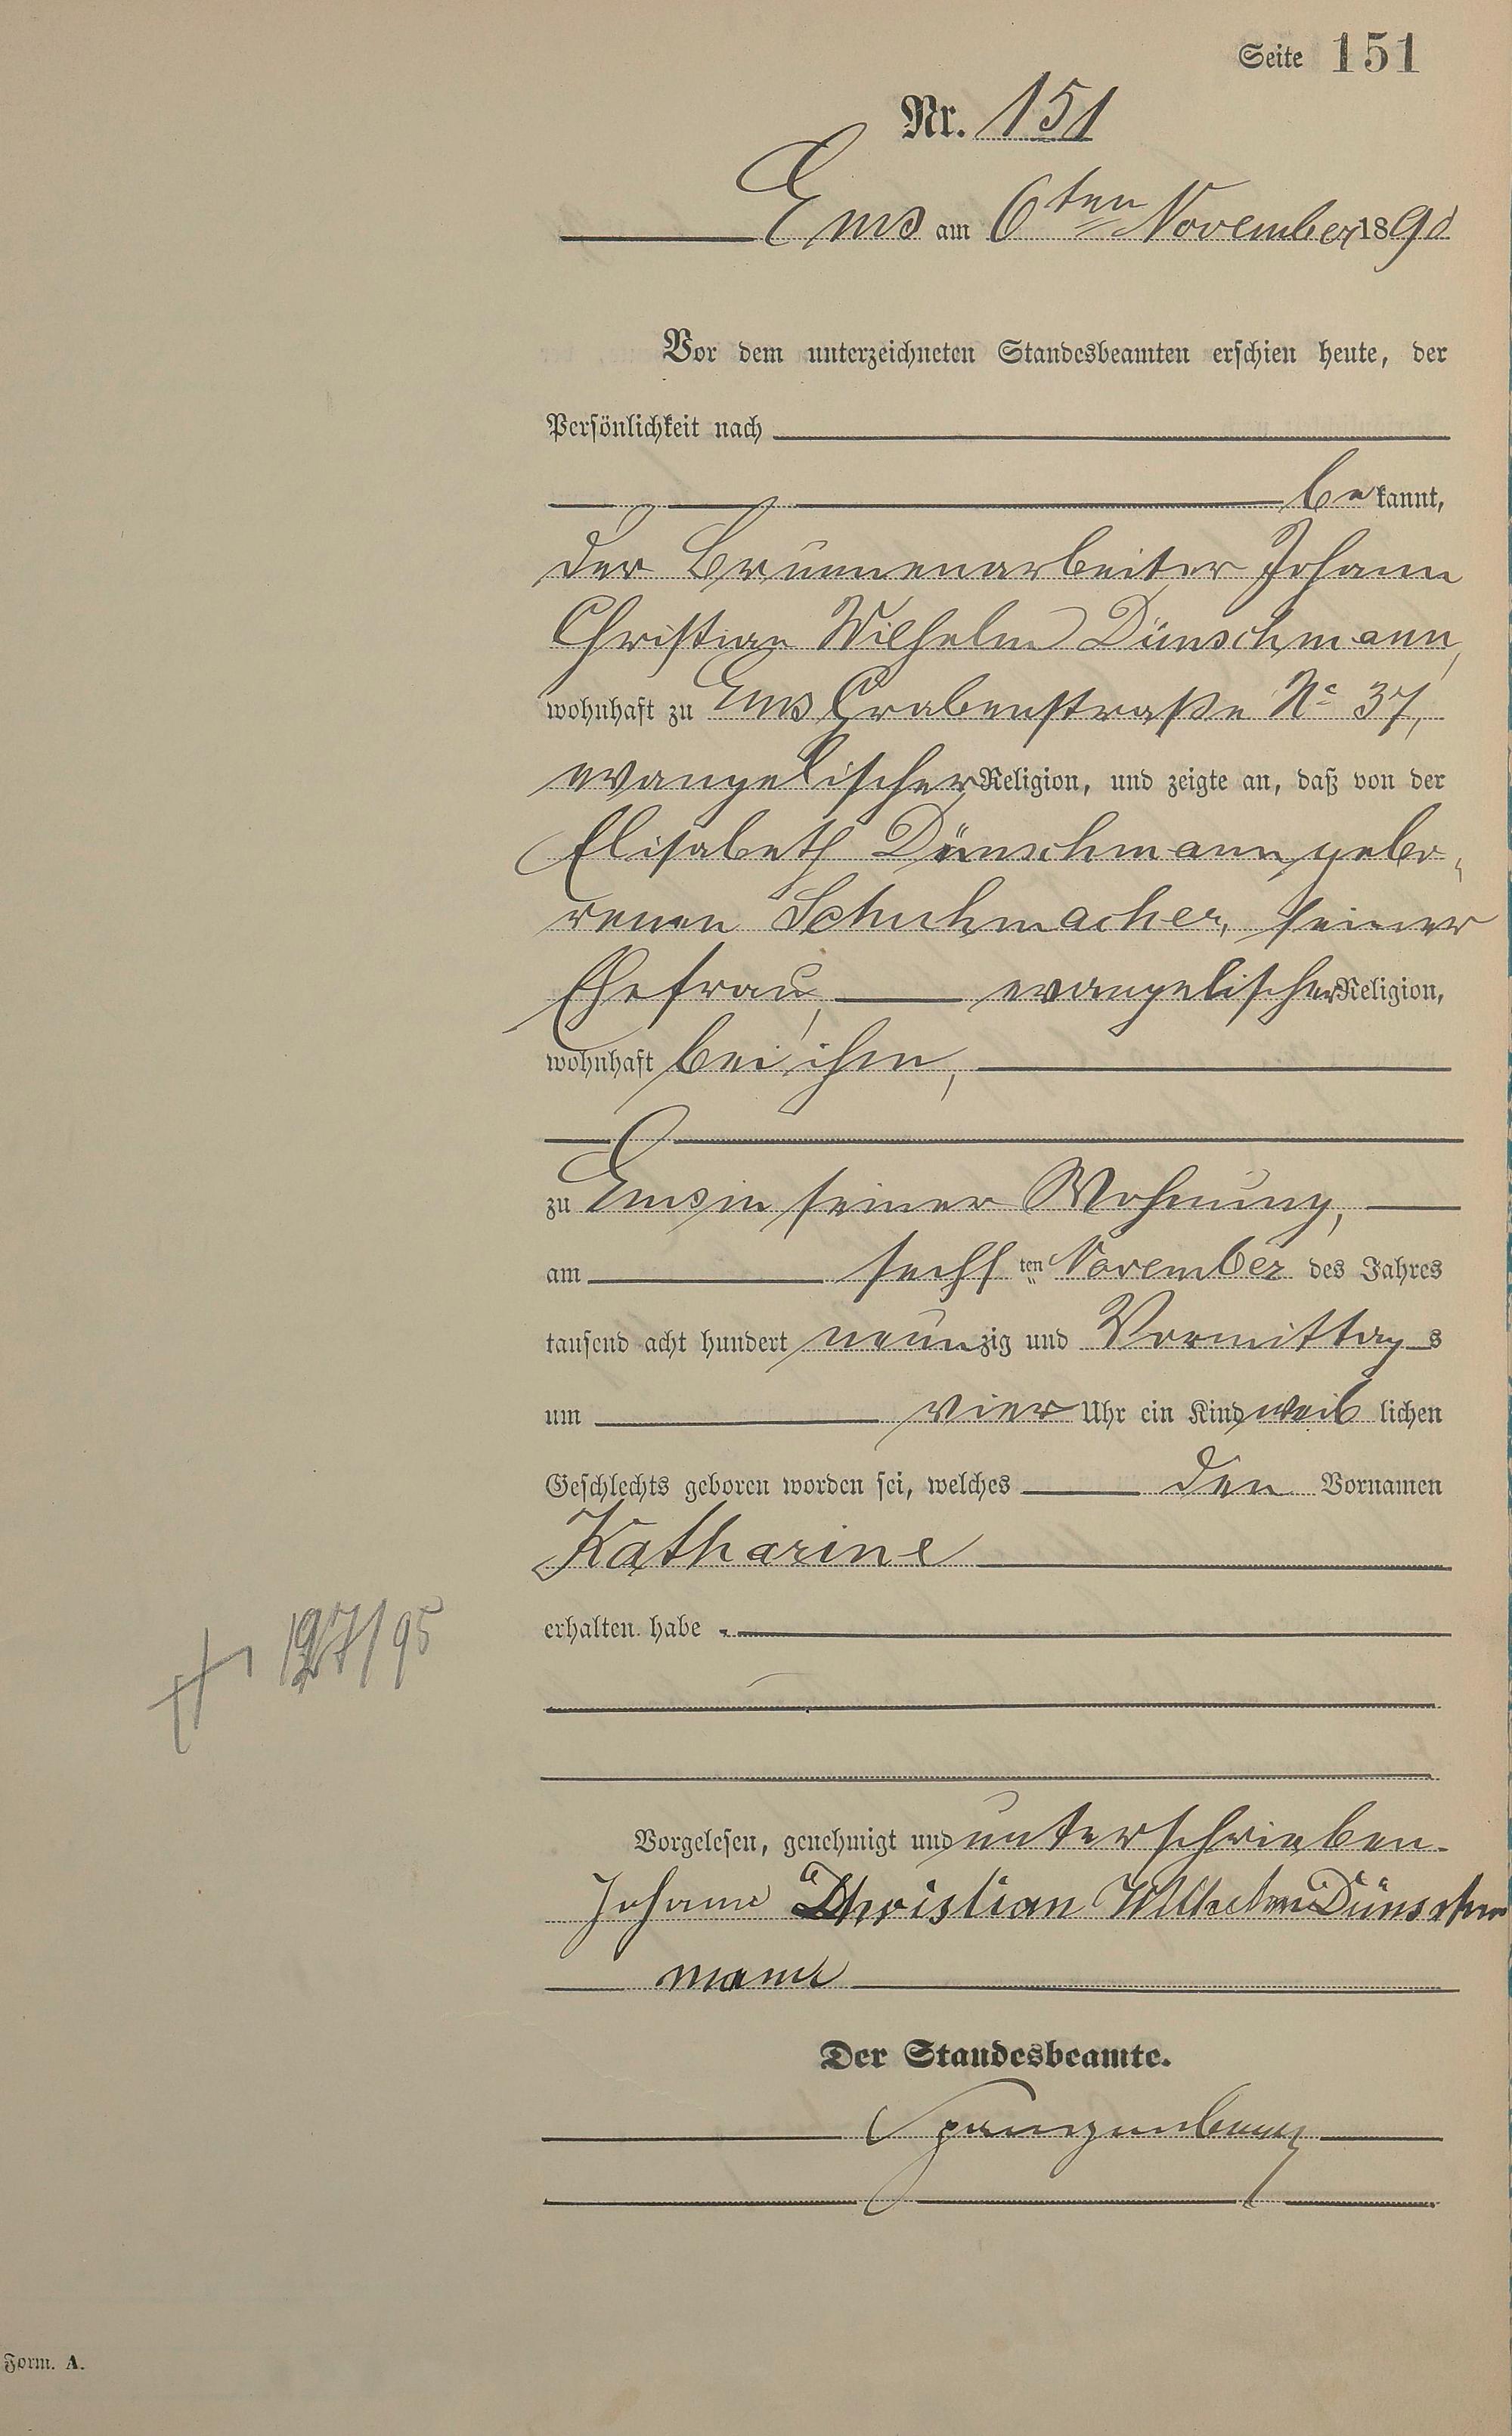 Seite 151
Nr. 151
Ems am 6ten November 1890
Vor dem unterzeichneten Standesbeamten erschien heute, der
Persönlichkeit nach
bekannt,
der Brunnenarbeiter Johann
Christian Wilhelm Dünschmann,
wohnhaft zu Ems Grabenstraße No 37,
evangelischer Religion, und zeigte an, daß von der
Elisabeth Dünschmann gebo-
renen Schuhmacher, seiner
Ehefrau, evangelischer Religion,
wohnhaft bei ihm,
zu Ems in seiner Wohnung,
am sechsten November des Jahres
tausend acht hundert neunzig und Vormittags
um vier Uhr ein Kind weiblichen
Geschlechts geboren worden sei, welches den Vornamen
Katharine
erhalten habe.
Vorgelesen, genehmigt und unterschrieben.
Johann Christian Wilhelm Dünsch
mann
Der Standesbeamte.
Spangenberg
Form. A.